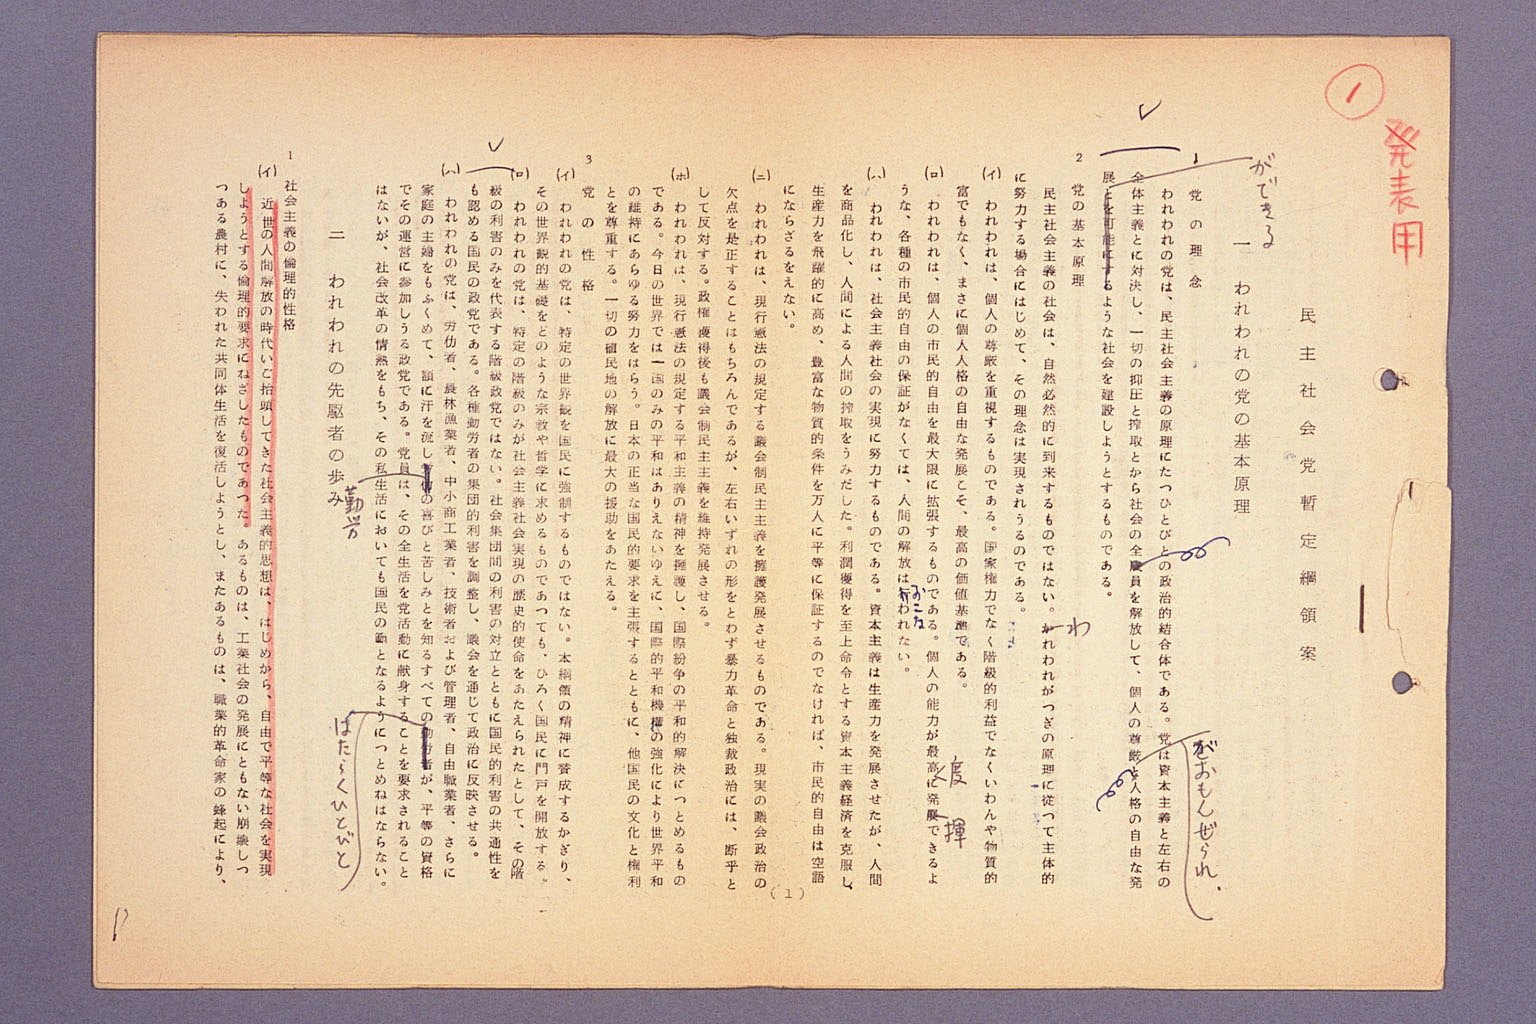 ①
発表用
民主社会党暫定綱領案
一 われわれの党の基本原理
ができる
1 党の理念
われわれの党は、民主社会主義の原理にたつひとびとの政治的結合体である。党は資本主義と左右の
全体主義とに対決し、一切の抑圧と搾取とから社会の全員を解放して、個人の尊厳と人格の自由な発
がおもんぜられ、
展とを可能にするような社会を建設しようとするものである。
2 党の基本原理
民主社会主義の社会は、自然必然的に到来するものではない。かれわれがつぎの原理に従つて主体的
わ
に努力する場合にはじめて、その理念は実現されうるのである。
(イ) われわれは、個人の尊厳を重視するものである。国家権力でなく階級的利益でなくいわんや物質的
富でもなく、まさに個人人格の自由な発展こそ、最高の価値基準である。
(ロ) われわれは、個人の市民的自由を最大限に拡張するものである。個人の能力が最高に発展できるよ
度
揮
うな、各種の市民的自由の保証がなくては、人間の解放は行われない。
おこな
(ハ) われわれは、社会主義社会の実現に努力するものである。資本主義は生産力を発展させたが、人間
を商品化し、人間による人間の搾取をうみだした。利潤獲得を至上命令とする資本主義経済を克服し、
生産力を飛躍的に高め、豊富な物質的条件を万人に平等に保証するのでなければ、市民的自由は空語
にならざるをえない。
(ニ) われわれは、現行憲法の規定する議会制民主主義を擁護発展させるものである。現実の議会政治の
欠点を是正することはもちろんであるが、左右いずれの形をとわず暴力革命と独裁政治には、断乎と
して反対する。政権獲得後も議会制民主主義を維持発展させる。
(ホ) われわれは、現行憲法の規定する平和主義の精神を擁護し、国際紛争の平和的解決につとめるもの
である。今日の世界では一国のみの平和はありえないゆえに、国際的平和機構の強化により世界平和
の維持にあらゆる努力をはらう。日本の正当な国民的要求を主張するとともに、他国民の文化と権利
とを尊重する。一切の植民地の解放に最大の援助をあたえる。
3 党の性格
(イ) われわれの党は、特定の世界観を国民に強制するものではない。本綱領の精神に賛成するかぎり、
その世界観的基礎をどのような宗教や哲学に求めるものであつても、ひろく国民に門戸を開放する。
(ロ) われわれの党は、特定の階級のみが社会主義社会実現の歴史的使命をあたえられたとして、その階
級の利害のみを代表する階級政党ではない。社会集団間の利害の対立とともに国民的利害の共通性を
も認める国民の政党である。各種勤労者の集団的利害を調整し、議会を通じて政治に反映させる。
(ハ) われわれの党は、労働者、農林漁業者、中小商工業者、技術者および管理者、自由職業者、さらに
家庭の主婦をもふくめて、額に汗を流しの喜びと苦しみとを知るすべてのが、平等の資格
勤労
はたらくひとびと
でその運営に参加しうる政党である。党員は、その全生活を党活動に献身することを要求されること
はないが、社会改革の情熱をもち、その私生活においても国民の範となるようにつとめねばならない。
二 われわれの先駆者の歩み
1 社会主義の倫理的性格
(イ) 近世の人間解放の時代いご抬頭してきた社会主義的思想は、はじめから、自由で平等な社会を実現
しようとする倫理的要求にねざしたものであつた。あるものは、工業社会の発展にともない崩壊しつ
つある農村に、失われた共同体生活を復活しようとし、またあるものは、職業的革命家の蜂起により、
(1)